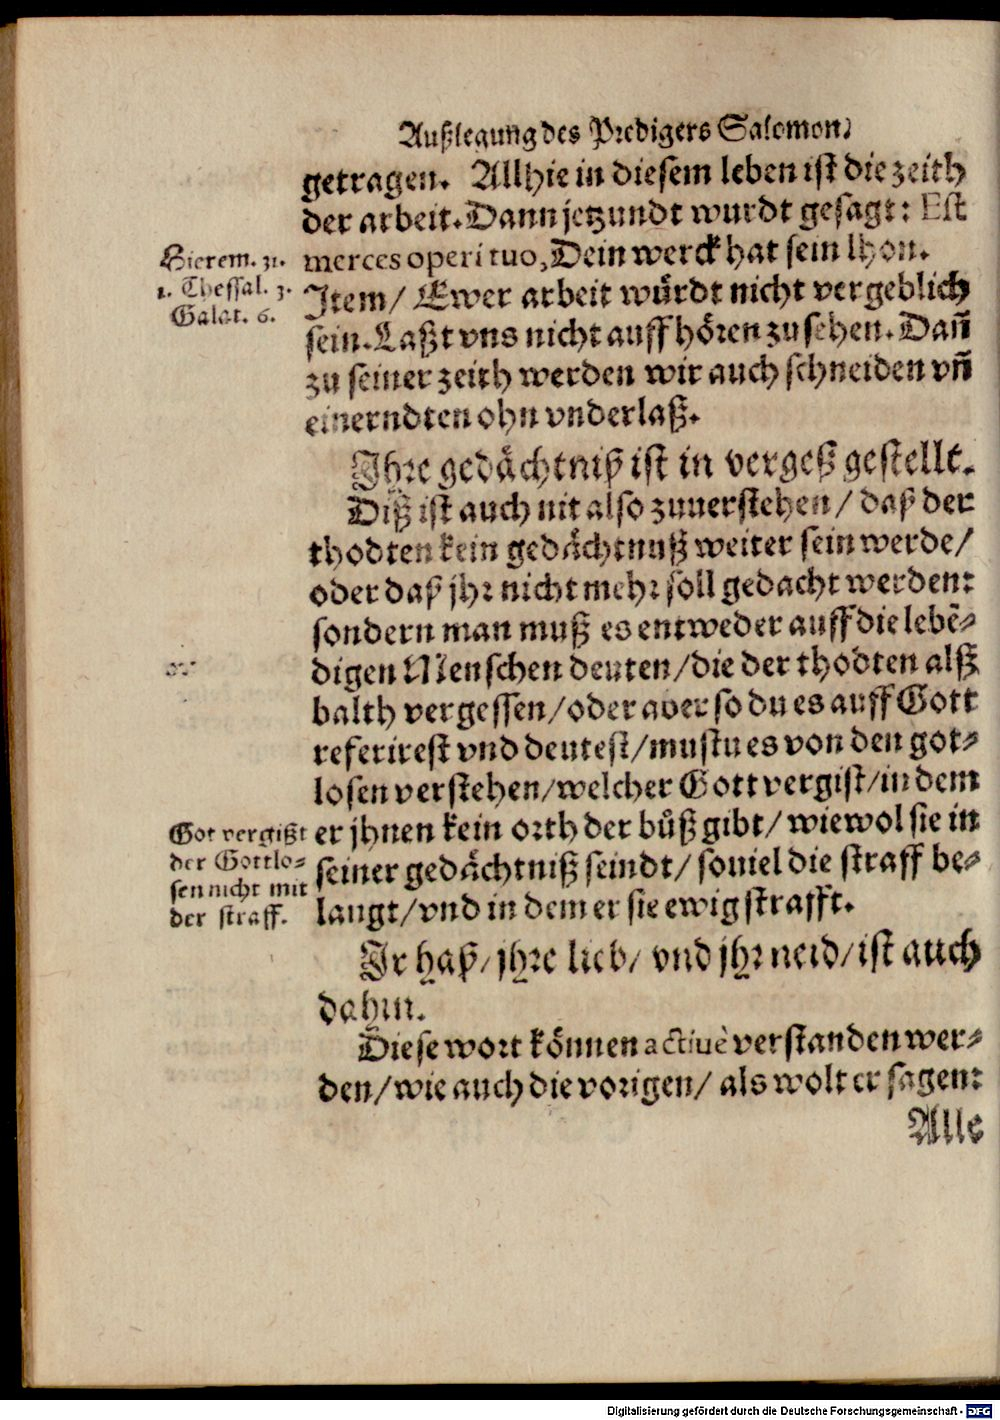 Außlegung des Predigers Salomon/
getragen. Allhie in diesem leben ist die zeith
der arbeit. Dann jetzundt wurdt gesagt: Est
Hierem. 31.
merces operi tuo, Dein werck hat sein lhon.
1. Thessal. 3.
Item/ Ewer arbeit würdt nicht vergeblich
Galat. 6.
sein. Laßt vns nicht auffhören zu sehen. Dañ
zu seiner zeith werden wir auch schneiden vñ
einerndten ohn vnderlaß.
Ihre gedächtniß ist in vergeß gestellt.
Diß ist auch nit also zuuerstehen/ daß der
thodten kein gedächtnuß weiter sein werde/
oder daß jhr nicht mehr soll gedacht werden:
sondern man muß es entweder auff die lebē-
digen Menschen deuten/die der thodten alß
balth vergessen/oder aber so du es auff Gott
referirest vnd deutest/mustu es von den got-
losen verstehen/welcher Gott vergist/in dem
Got vergißt
der Gottlo-
sen nicht mit
der straff.
er jhnen kein orth der büß gibt/ wiewol sie in
seiner gedächtniß seindt/ souiel die straff be-
langt/vnd in dem er sie ewig strafft.
Ir haß/ jhre lieb/ vnd jhr neid/ist auch
dahin.
Diese wort können actiuè verstanden wer-
den/wie auch die vorigen/ als wolt er sagen:
Alle
Digitalisierung gefördert durch die Deutsche Forschungsgemeinschaft - DFG